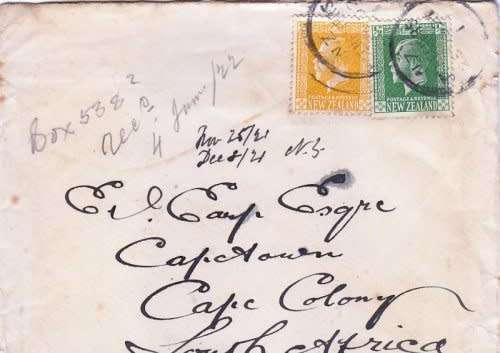 POSTAGE & REVENUE
NEW ZEALAND
POSTAGE & REVENUE
NEW ZEALAND
Box 5382
Recd
4 Jan/22
Nov 25/21
Dec 8/21 N.Z.
Earp Esqre
Capetown
Cape Colony
South Africa